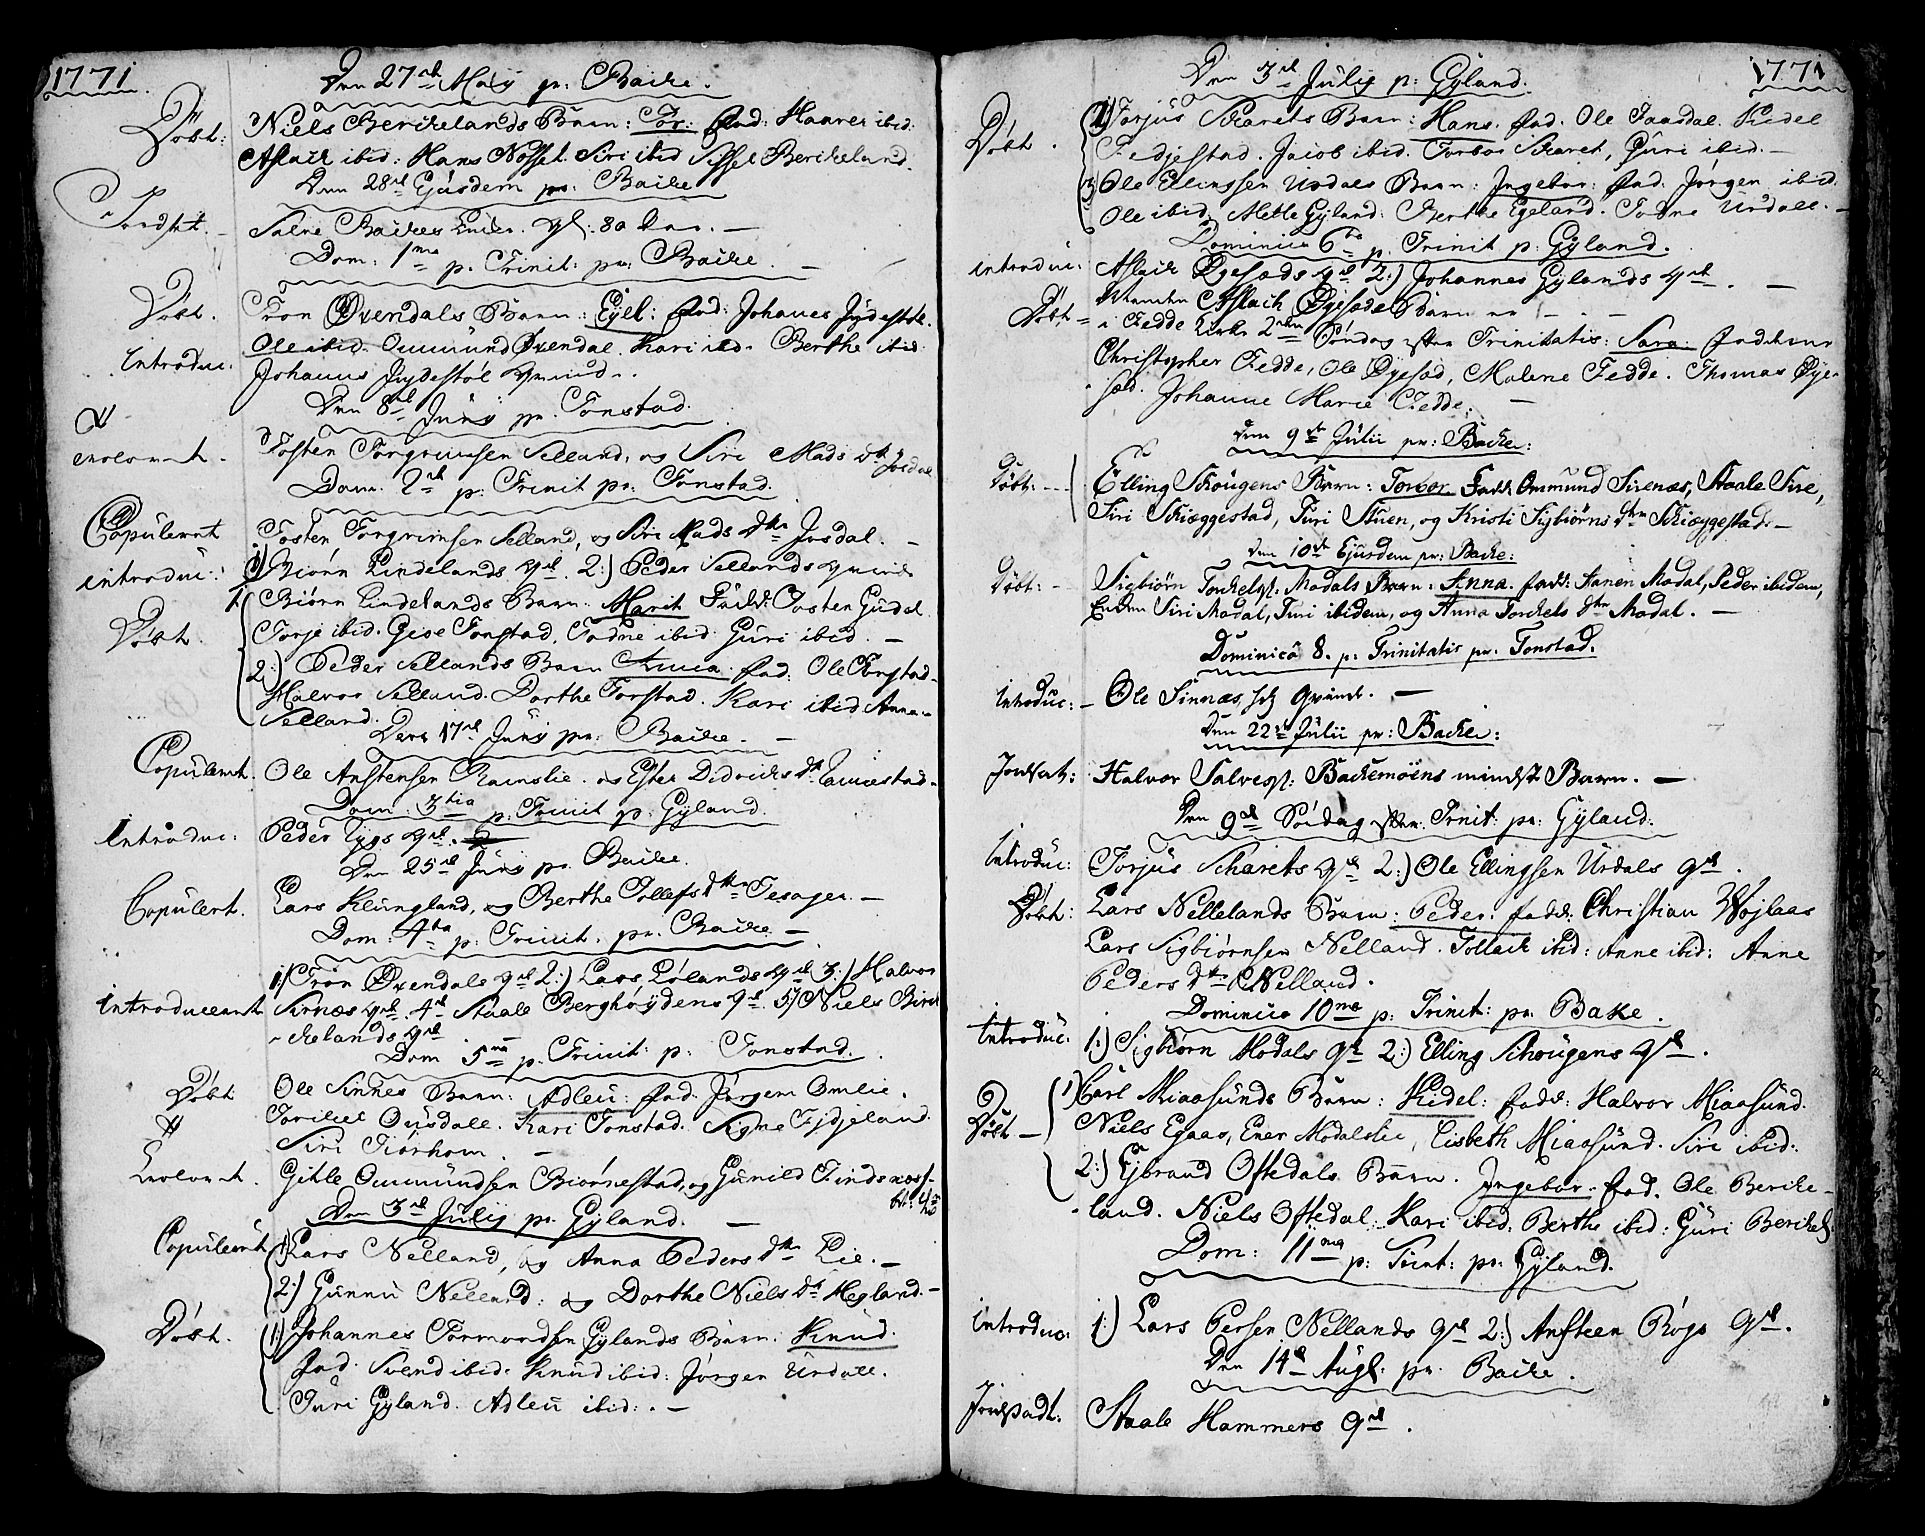 1771.
Den 27de Maij pr: Backe.
Döbt: Niels Berckelands Barn: Tor: fad: Haaver ibid:
Aslack ibid: Hans Nossel. Siri ibid Sissel Berckeland.
Den 28de Ejusdem pr: Backe
Jordsat. Salve Backes Encke. gl: 80 Aar. —
Dom: 1ma p. Trinit: pr: Backe. —
Döbt. Tron Øvendals Barn: Eyel: fad: Johanes Jydestöl.
Ole ibid. Ommund Øvendal. Kari ibid. Berthe ibid:
Introduc. Johannes Jydestöl qvind.
Den 8de Junij pr. Tonstad.
Trolovet. Tosten Torgrimsen Selland, og Siri Mads dtr Josdal
Dom. 2de p: Trinit pr: Tonstad.
Copuleret Tosten Torgrimsen Selland, og Siri Mads Dtr Josdal. —
introduc: 1) Biörn Lindelands qvl. 2:) Peder Sellands qvinde
Döbt. 1. Biörn Lindelands Barn: Marit Fadd: Tosten Gudal
Torje ibid. Gise Tonstad. Todne ibid Guri ibid. —
2:) Peder Sellands Barn Anna. fad: Ole Tonstad.
Halvor Selland. Dorthe Tonstad. Kari ibid Anna
Selland.
Den 17de Junij pr: Backe. —
Copulert. Ole Anstensen Ramslie. og Ester Didricks dt
Dom. 3tia p. Trinit p: Gyland.
Introduc: Peder Lygs qvl.
Den 25de Junij pr. Backe.
Copulert. Lars Klungland, og Berthe Tollefs dtr Tesager. —
Dom: 4ta p: Trinit. pr: Backe —
Introduceret 1:) Tron Øvendals qvl 2:) Lars Lölands qvl 3:) Halvor
Sirnæs qvl. 4de Staale Berghöydens qvl. 5) Niels Birck
kelands qvl.
Dom 5ta p. Trinit: p: Tonstad.
Döbt Ole Sinnes Barn: Adleu: fad: Jörgen Omlie.
Torkel Ousdall. Kari Tonstad. Signe Fidjeland.
Siri Tiörhom. —
Trolovet. Gitle Ommundsen Biörnestad, og Gunild Tr
Den 3de Julij pr. Gyland. —
Copuleret 1) Lars Nelland, og Anna Peders dtr Lie. —
2:) Gunnu Nelland: og Dorthe Niels Dt Hegland. —
Döbt. 1) Johannes Tormondsen Gylands Barn: Knud.
fad. Svend ibid. Knud ibid: Jörgen Urdall.
Guri Gyland. Adleu ibid:. —
1771
Den 3de Julij p: Gyland.
Döbt. 1) Torjus Skarets Barn: Hans. fad. Ole Faasdal. Kidel
Fedjestad. Jacob ibid. Torbor Skaret, Guri ibid. —
2) Ole Ellingsen Urdals Barn: Ingebor: fad: Jörgen ibid.
Ole ibid. Mette Gyland: Berthe Egeland. Todne Urdall. —
Dominica 6ta p. Trinit p: Gyland.
introduc: Aslack Øgesads qvl 2:) Johannes Gylands qvl. —
Döbt Aslach Øgesads Barn er — . —
i Fedde Kirke 2den Söndag efter Trinitatis: Sara: fadderne
Christopher Fedde, Ole Øgesad, Malene Fedde. Thomas Øye-
sad. Johanne Marie Fedde: —
Den 9de Julii pr: Backe:
Döbt: -- Elling Skougens Barn: Torbor. Fadd: Ommund Sirenæs, Staale Sire,
Siri Skiæggestad, Turi Stuen, og Kristi Sigbiörns dtr Skiæggestad. —
Den 10de Ejusdem pr: Backe:
Döbt: - Sigbiörn Torkelsss. Modals Barn: Anna. fadd: Hanen Modal, Peder ibidem,
Siri Modal, Turi ibidem, og Anna Torckels dtr Modal. —
Dominica 8. p: Trinitatis pr. Tonstad.
Introduc: - Ole Sinnæs, hs qvinde. —
Den 22de Julii pr: Backe:
Jordsat: Halvor Salvess: Backemöens mindste Barn. —
Den 9de Söndag efter Trnit: pr: Gyland:
Introduc: Torjus Scharets qvl 2:) Ole Ellingsen Urdals qvl.
Döbt: Lars Nellelands Barn: Peder: fadd: Christian Höjlaas
Lars Sigbiörnsen Nelland. Tollack ibid: Anne ibid: Anne
Peders dtr Nelland.
Dominica 10ma p: Trinit: pr. Bake.
Introduc: 1:) Sigbiorn Modals qvl 2:) Elling Schougens qvl.
Döbt — 1) Carl Miaasunds Barn: Kidel: fadd: Halvor Miaasund.
Niels Egaas, Ener Modalslie, Lisbeth Miaasund. Siri ibid:
2:) Eybrand Oftedals Barn. Ingebor. fad. Ole Bercke-
land. Niels Oftedal: Kari ibid: Berthe ibid: Guri Berckel:
Dom: 11ma p: Trint: pr. Gyland.
Introduc: 1:) Lars Persen Nellands qvl 2:) Ansteen Rögs qvl.
Den 14de Augl: pr. Backe.
Jordsadt: Staale Hammers qvl.